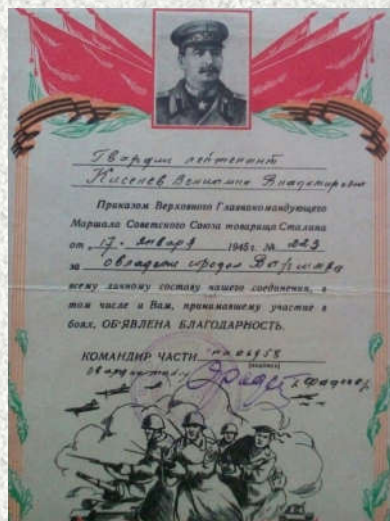 Гвардии лейтенант
Киселев Вениамин Владимирович
Приказом Верховного Главнокомандующего
Маршала Советского Союза товарища Сталина
от „17“ января 1945 г. № 223
за овладение городом Варшава
всему личному составу нашего соединения, в
том числе и Вам, принимавшему участие в
боях, ОБ'ЯВЛЕНА БЛАГОДАРНОСТЬ.
КОМАНДИР ЧАСТИ 06958
(подпись)